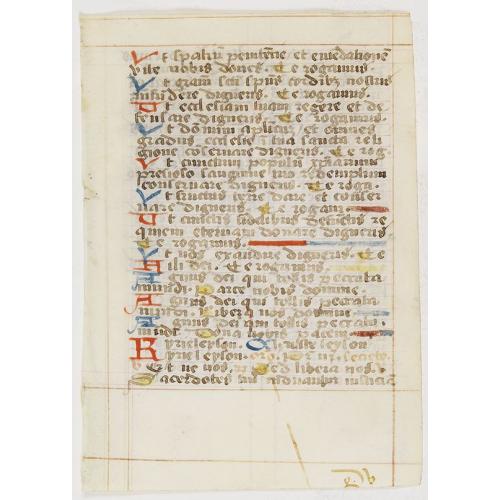 Ut spaliu penitencie et emedatione
vite nobis dones. Te rogamus.
Ut gram scti spus cordibz nostris
infudere digneris. Te rogamus.
Ut ecclesiam tuam regere et de
fensare digneris. Te rogamus.
Ut domnu aplicu et omnes
gradus ecclesie i sca religi
gione coservare digneris. Te rog
Ut cunctum populu xpianum
precioso sanguine tuo redemptum
conservare digneris. Te roga
Ut fructus terre dare et conser
vare digneris. Te rogam
Ut cunctis fidelibus defuctis re
quiem eternam donare digneris
Te rogamus.
Ut nos exaudire digneris. Te
fili dei. Te rogamus.
Agnus dei qui tollis peccata
mundi. Parce nobis domine.
Agnus dei qui tollis peccata
mundi. Libera nos domine
Agnus dei qui tollis peccata
mudi. Dona nobis pace
Kyrieleyson. Christeleyson
Kyrieleyson. Pr nr. secrete.
Et ne nos. Sed libera nos.
Sacerdotes tui induantur iusticia